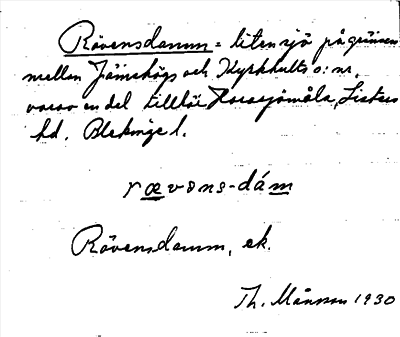 Rävensdamm = liten sjö på gränsen
mellan Jämshögs och Kyrkhults s:nr,
varav en del tillhör Harasjömåla, Listers
hd. Blekinge l.
rævəns-dám
Rävensdamm, ek.
Th. Månsson 1930